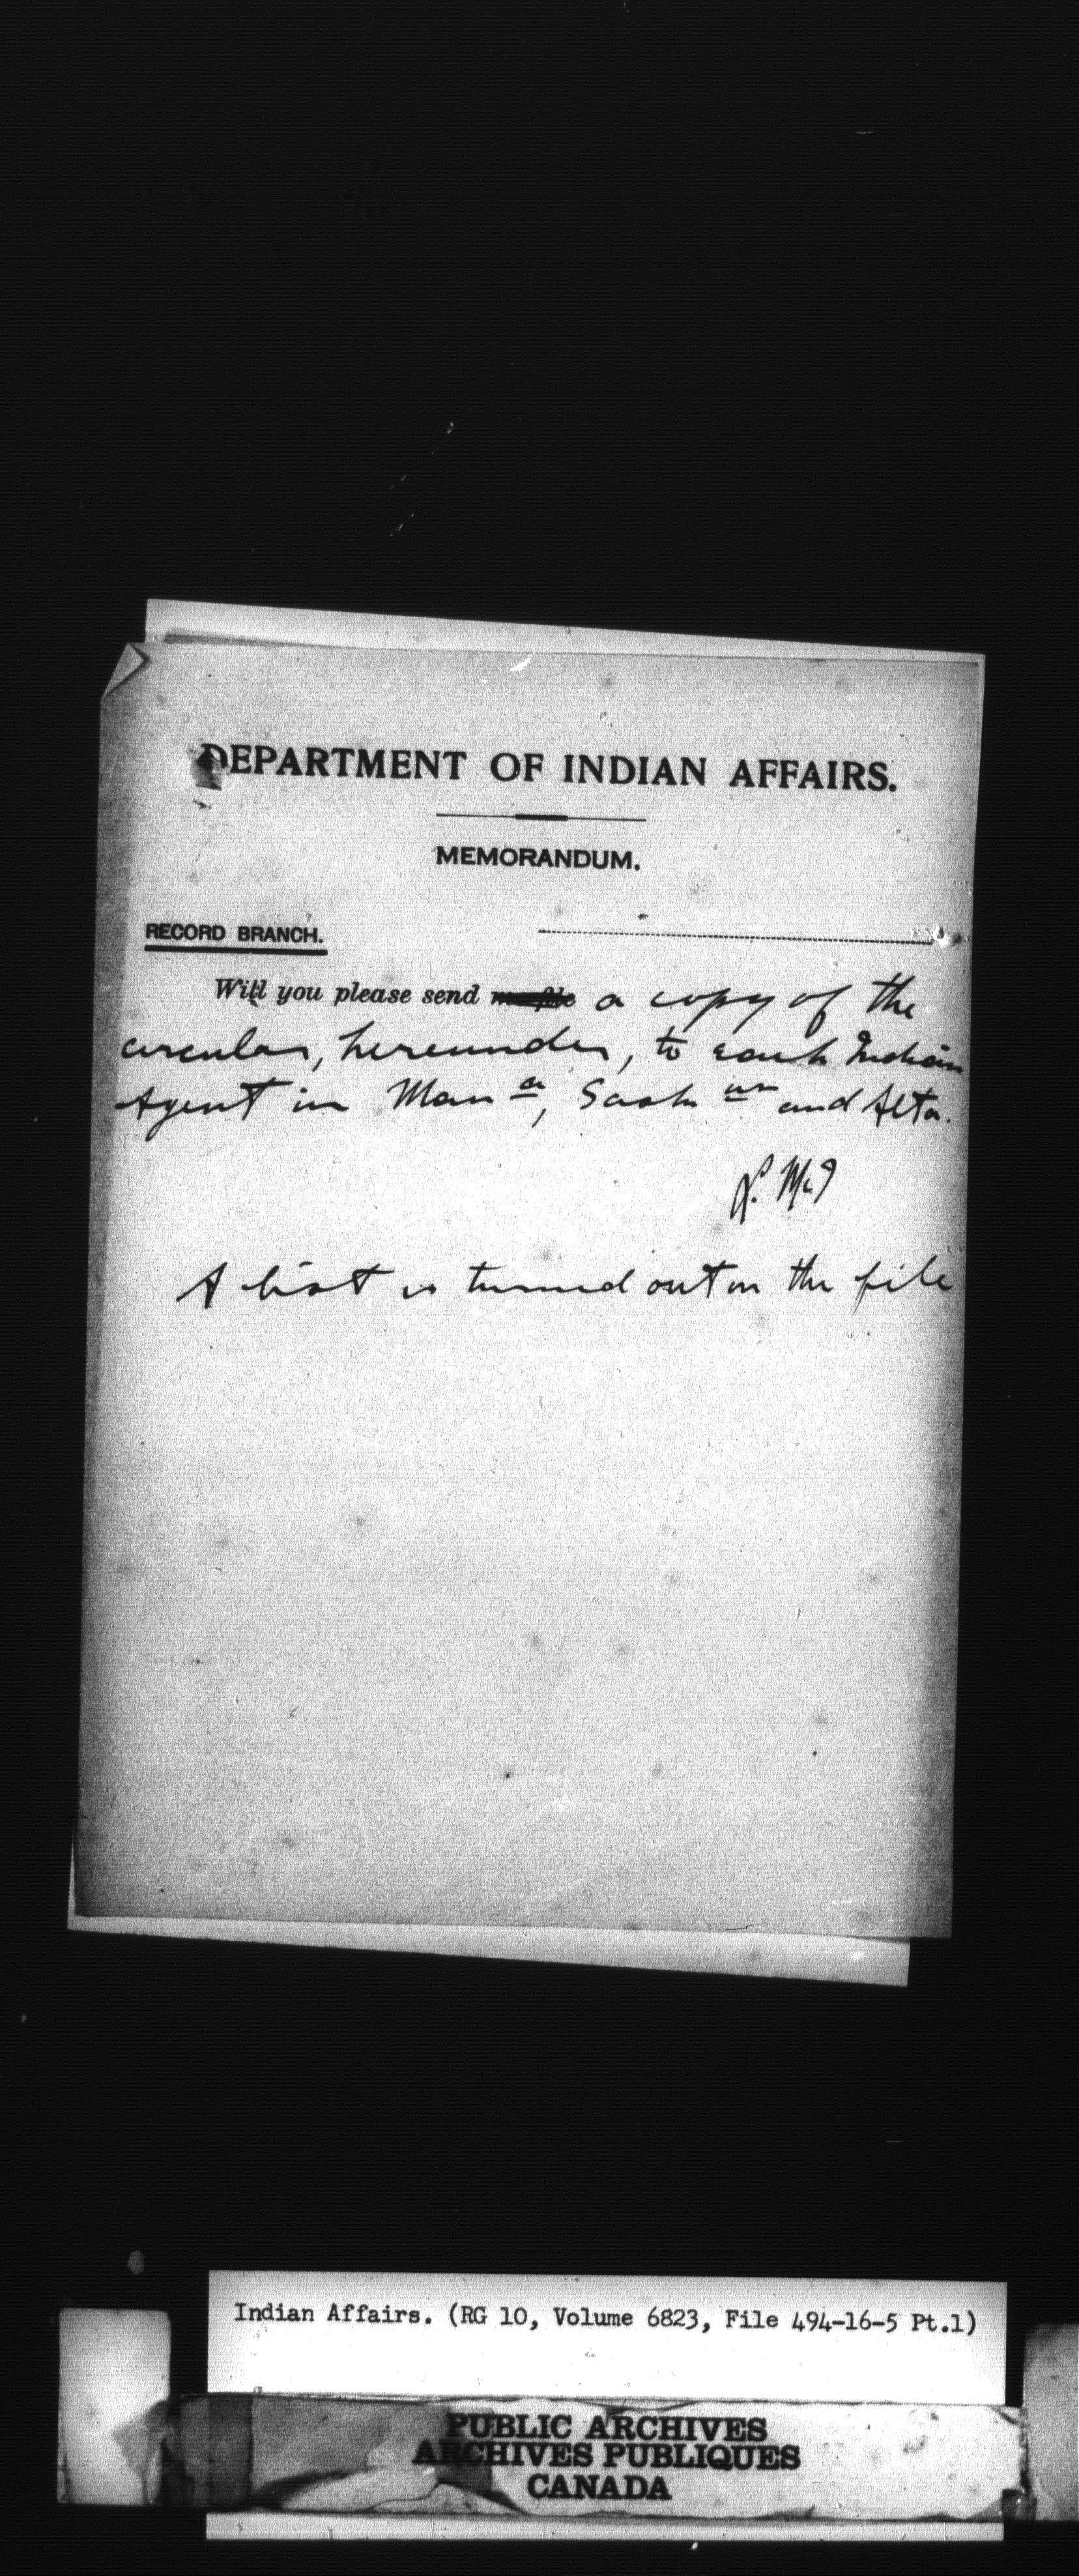 DEPARTMENT OF INDIAN AFFAIRS.
MEMORANDUM.
RECORD BRANCH.
Will you please send me file a copy of the
circular, hereunder, to each Indian
Agent in Man a, Sask wn and Alta.
A list is turned out on the file
Indian Affairs. (RG 10, Volume 6823, File 494-16-5 Pt.1)
PUBLIC ARCHIVES
ARCHIVES PUBLIQUES
CANADA